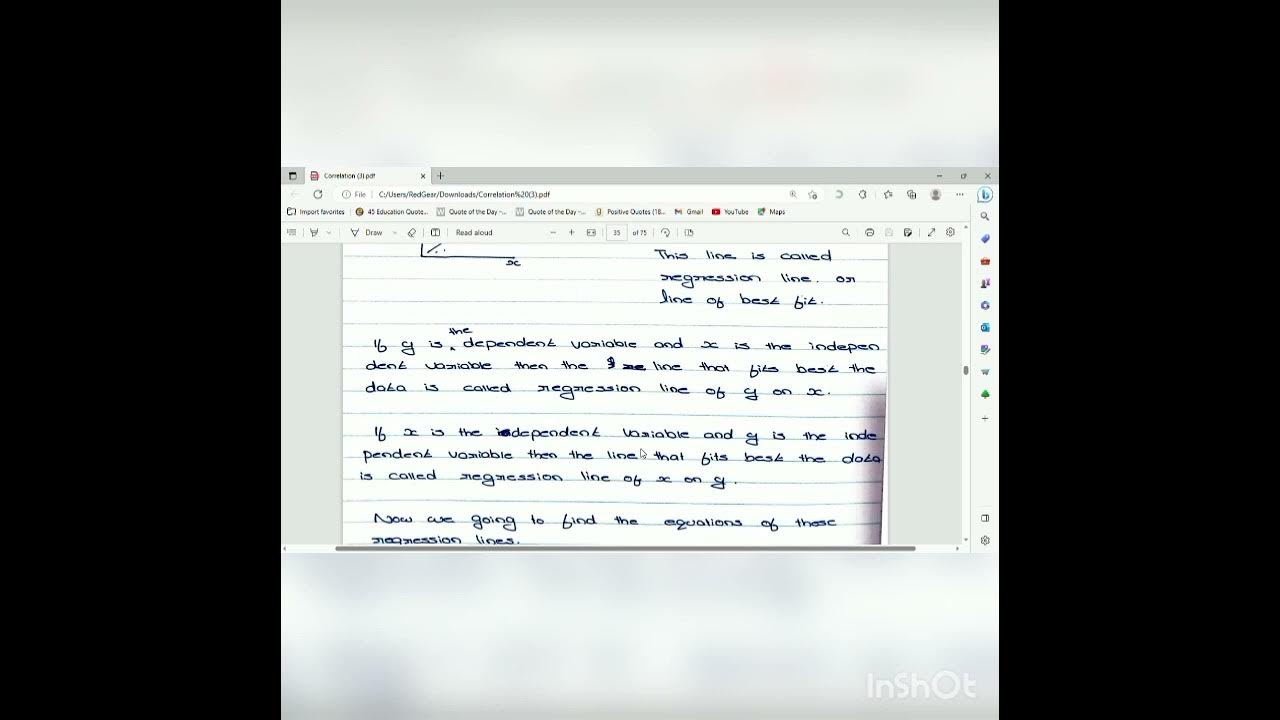 Correlation (3).pdf
File C:/Users/RedGear/Downloads/Correlation%20(3).pdf
Import favorites 45 Education Quote... Quote of the Day -... Quote of the Day -... Positive Quotes (18... Gmail YouTube Maps
Draw Read aloud 35 of 75
x
This line is called
regression line. or
line of best fit.
the
If y is dependent variable and x is the indepen
dent variable then the line that fits best the
data is called regression line of y on x.
If x is the dependent variable and y is the inde
pendent variable then the line that fits best the data
is called regression line of x on y.
Now we going to find the equations of these
regression lines.
InShOt